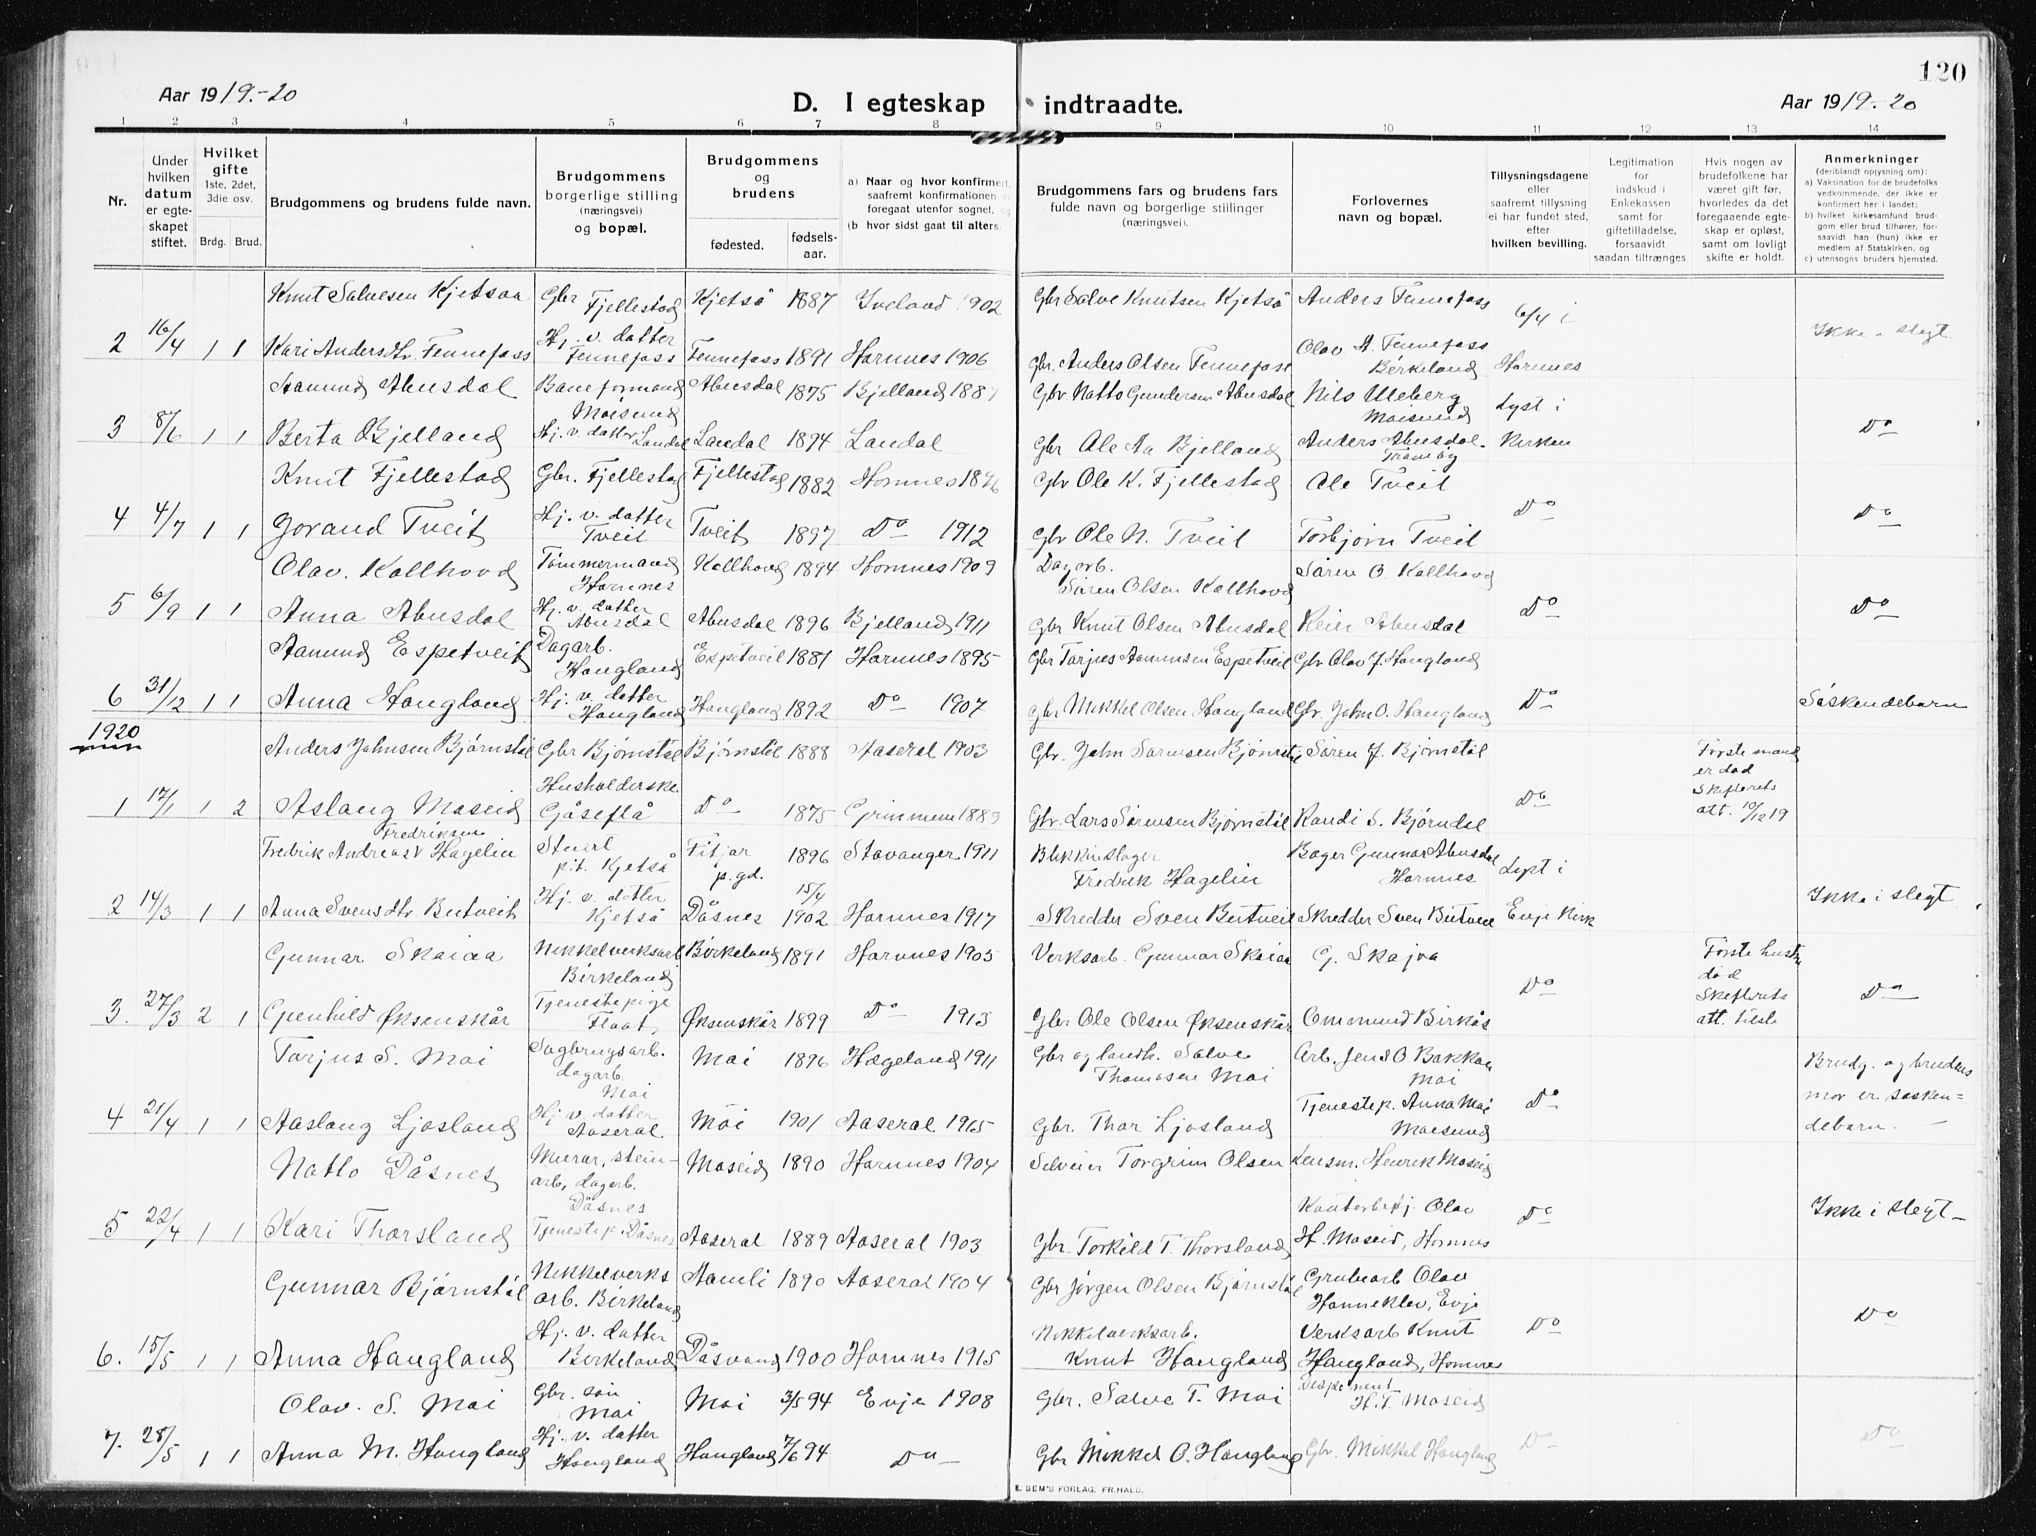 120
Aar 1919.-20
D. I egteskap indtraadte.
Aar 1919.-20
1 2 3 4 5 6 7 8 9 10 11 12 13 14
Nr.
Under hvilken datum er egteskapet stiftet.
Hvilket gifte 1ste, 2det, 3die osv.
Brdg. Brud.
Brudgommens og brudens fulde navn.
Brudgommens borgerlige stilling (næringsvei) og bopæl.
Brudgommens og brudens
fødested. fødsels-aar.
a) Naar og hvor konfirmert, saafremt konfirmationen er foregaat utenfor sognet, og
(b hvor sidst gaat til alters.
Brudgommens fars og brudens fars fulde navn og borgerlige stillinger (næringsvei).
Forlovernes navn og bopæl.
Tillysningsdagene eller saafremt tillysning ei har fundet sted, efter hvilken bevilling.
Legitimation for indskud i Enkekassen samt for giftetilladelse, forsaavidt saadan tiltrænges
Hvis nogen av brudefolkene har været gift før, hvorledes da det foregaaende egteskap er opløst, samt om lovligt skifte er holdt.
Anmerkninger (deriblandt opysning om):
a) Vaksination for de brudefolks vedkommende, der ikke er konfirmert her i landet;
b) hvilket kirkesamfund brudgom eller brud tilhører, forsaavidt han (hun) ikke er medlem af Statskirken, og
c) utensogns bruders hjemsted.
Knut Salvesen Kjetsaa Gbr Fjellestad Kjetså 1887 Iveland 1902 Gbr Salve Knutsen Kjetså Anders Fennefoss 6/4 i
2 16/4 1 1 Kari Andersdtr. Fennefoss Hj. v. datter Fennefoss Fennefoss 1891 Hornnes 1906 Gbr. Anders Olsen Fennefoss Olav A. Fennefoss Birkeland Hornnes Ikke i slegt
Aamund Abusdal Baneformand Moisund Abusdal 1875 Bjelland Gbr Natto Gundersen Abusdal Nils Uleberg Moisund Lyst i
3 8/6 1 1 Berta Bjelland Hj. v. datter Landal Landal 1894 Landal Gbr Ole Aa Bjelland Anders Abusdal Kirken Do
Knut Fjellestad Gbr. Fjellestad Fjellestad 1882 Hornnes 1896 Gbr Ole K. Fjellestad Ole Tveit
4 4/7 1 1 Gorand Tveit Hj. v. datter Tveit Tveit 1897 Do 1912 Gbr Ole N. Tveit Torbjørn Tveit Do Do
Olav Kallhovd Tømmermand Hornnes Kallhovd 1894 Hornnes 1909 Dagarb. Søren Olsen Kallhovd Søren O. Kallhovd
5 6/9 1 1 Anna Abusdal Hj. v. datter Abusdal Abusdal 1896 Bjelland 1911 Gbr Knut Olsen Abusdal Reier Abusdal Do Do
Aamund Espetveit Dagarb. Haugland Espetveit 1881 Hornnes 1895 Gbr Tarjes Aamundsen Espetveit Gbr Olav J. Haugland
6 31/12 1 1 Anna Haugland Hj. v. datter Haugland Haugland 1892 Do 1907 Gbr Mikkel Olsen Haugland Gbr. John O. Haugland Do Søskendebarn
1920
Anders Johnsen Bjørnstøl Gbr Bjørnstøl Bjørnstøl 1888 Aaseral 1903 Gbr. John Sørensen Bjørnstøl Søren J. Bjørnstøl Første mand er død
1 17/1 1 2 Aslaug Moseid Husholderske Gåseflå Do 1875 1889 Gbr. Lars Sørensen Bjørnstøl Randi S. Bjørndal Do Skifterets att. 10/12 19
Fredrik Andreas Fredriksen Hagelin p.t. Kjetså Fitjar p.gd. 1896 Stavanger 1911 Blikkinslager Fredrik Hagelin Bager Gunnar Abusdal Hornnes Lyst i
2 14/3 1 1 Anna Svensdtr. Butveit Hj. v. datter Kjetså Dåsnes 15/4 1902 Hornnes 1917 Skredder Sven Butveit Skredder Sven Butveit Evje Kirk Ikke i slegt
Gunnar Skaiaa Nikkelverksarb Birkeland Birkeland 1891 Hornnes 1905 Verksarb. Gunnar Skaiaa G. Skajaa Første hustru død
3. 27/3 2 1 Gunhild Øksenskår Tjenestepige Flaat, Øksenskår 1899 Do 1913 Gbr Ole Olsen Øksenskår Ommund Birkås Do Skifterets att. Do
Torjus S. Moi Sagbrugsarb. dagarb. Moi Moi 1896 Hægeland 1911 Gbr og landh. Salve Thomasen Moi Arb. Jens O Bakkan Moi Brudg. og brudens
4 21/4 1 1 Aaslaug Ljosland Hj v. datter Aaseral Moi 1901 Aaseral 1915 Gbr. Thor Ljosland Tjenestep. Anna Moi Moisund Do mor er søsken=debarn.
Natlo Dåsnes Murar, stein-arb, dagarb. Dåsnes Moseid 1890 Hornnes 1904 Selveier Torgrim Olsen Lensm. Henrik Moseid
5 22/4 1 1 Kari Thorsland Tjenestep. Dåsnes Aaseral 1889 Aaseral 1903 Gbr. Torkild T. Thorsland Olav H. Moseid, Hornnes Do Ikke i slegt
Gunnar Bjørnstøl Nikkelverks arb. Birkeland Aamli 1890 Aaseral 1904 Gbr Jørgen Olsen Bjørnstøl Grubearb Olav Honneklev, Evje
6. 15/5 1 1 Anna Haugland Hj. v. datter Birkeland Dåsvand 1900 Hornnes 1915 Nikkelverksarb. Knut Haugland Verksarb Knut Haugland, Hornnes Do Do
Olav. S. Moi Gbr. søn Moi Moi 3/5 94 Evje 1908 Gbr. Salve T. Moi H. T. Moseid
7. 28/5 1 1 Anna M. Haugland Hj. v. datter Haugland Haugland 7/6 94 Do Gbr Mikkel O. Haugland Gbr. Mikkel Haugland Do Do
E. SEM'S FORLAG. FR.HALD.